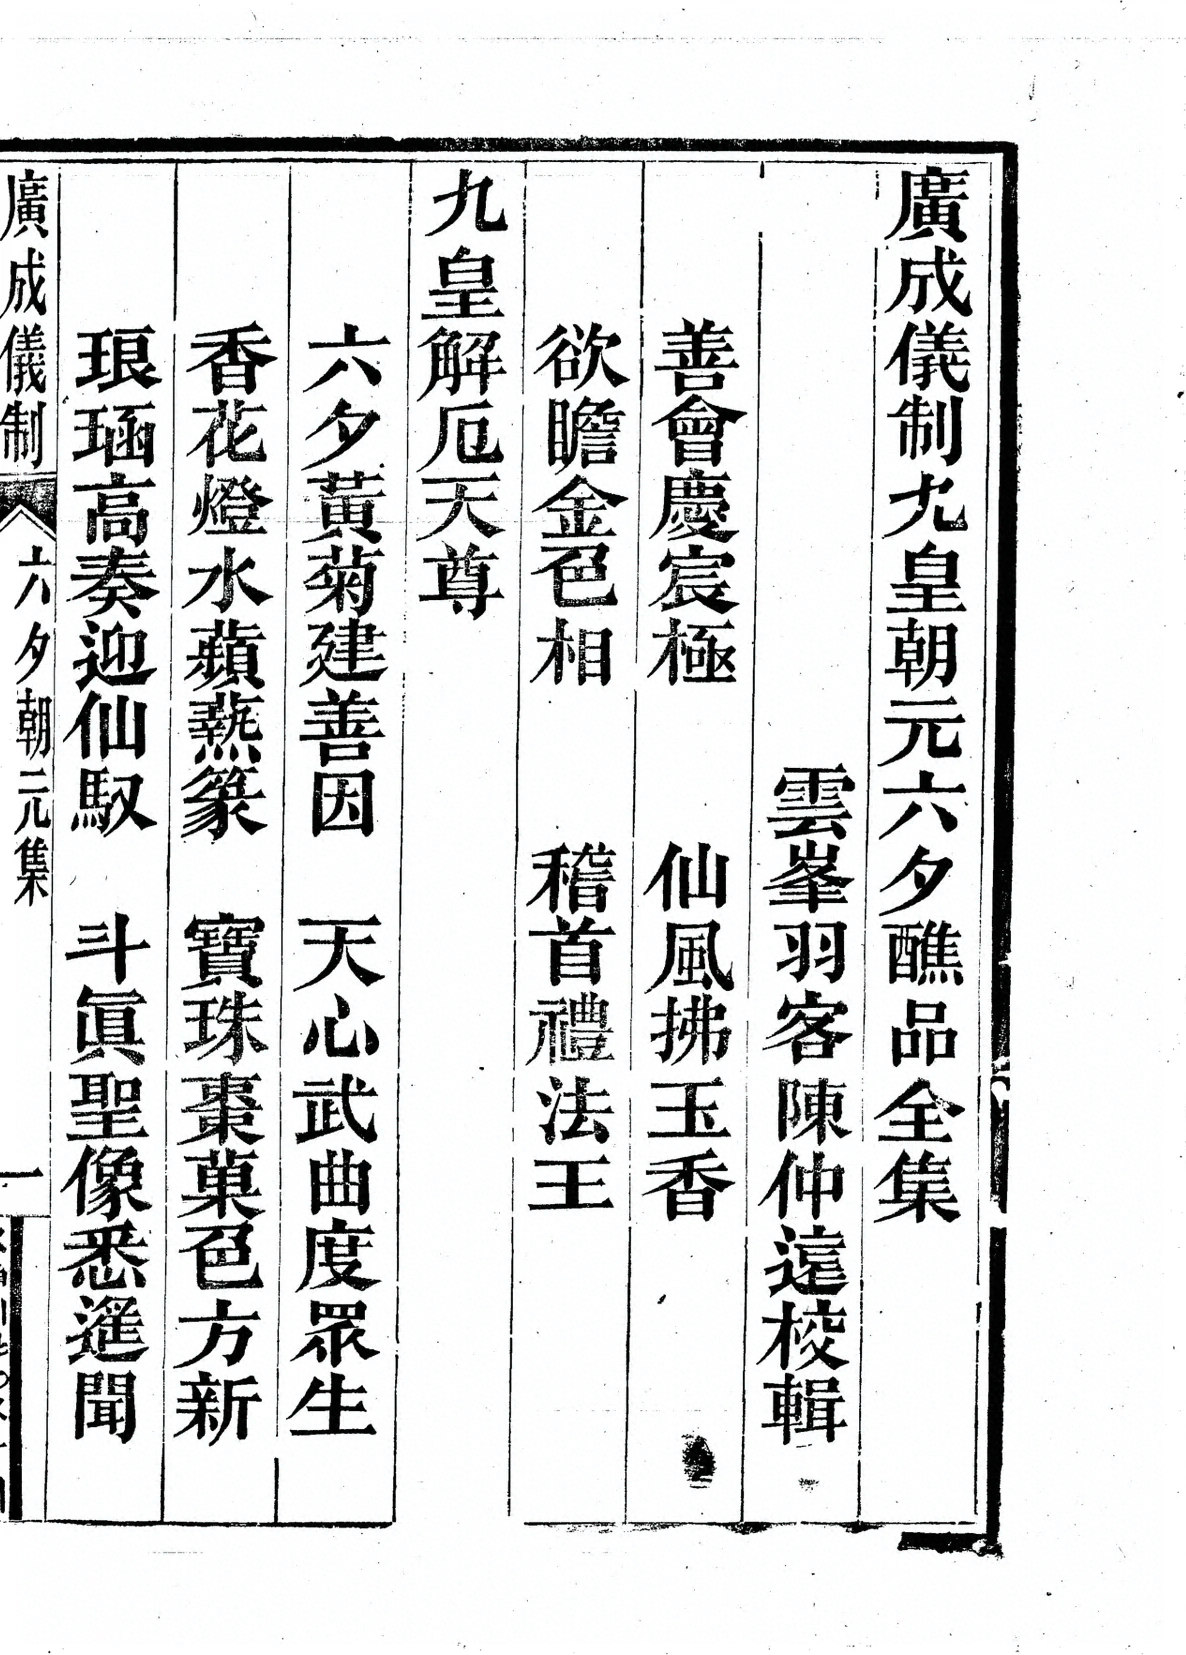 廣成儀制九皇朝元六夕醮品全集
雲峯羽客陳仲遠校輯
善會慶宸極　仙風拂玉香
欲瞻金色相　稽首禮法王
九皇解厄天尊
六夕黃菊建善因　天心武曲度眾生
香花燈水蘋爇篆　寶珠棗菓色方新
琅瑤高奏迎仙馭　斗眞聖像悉遙聞
廣成儀制　六夕朝元集　一